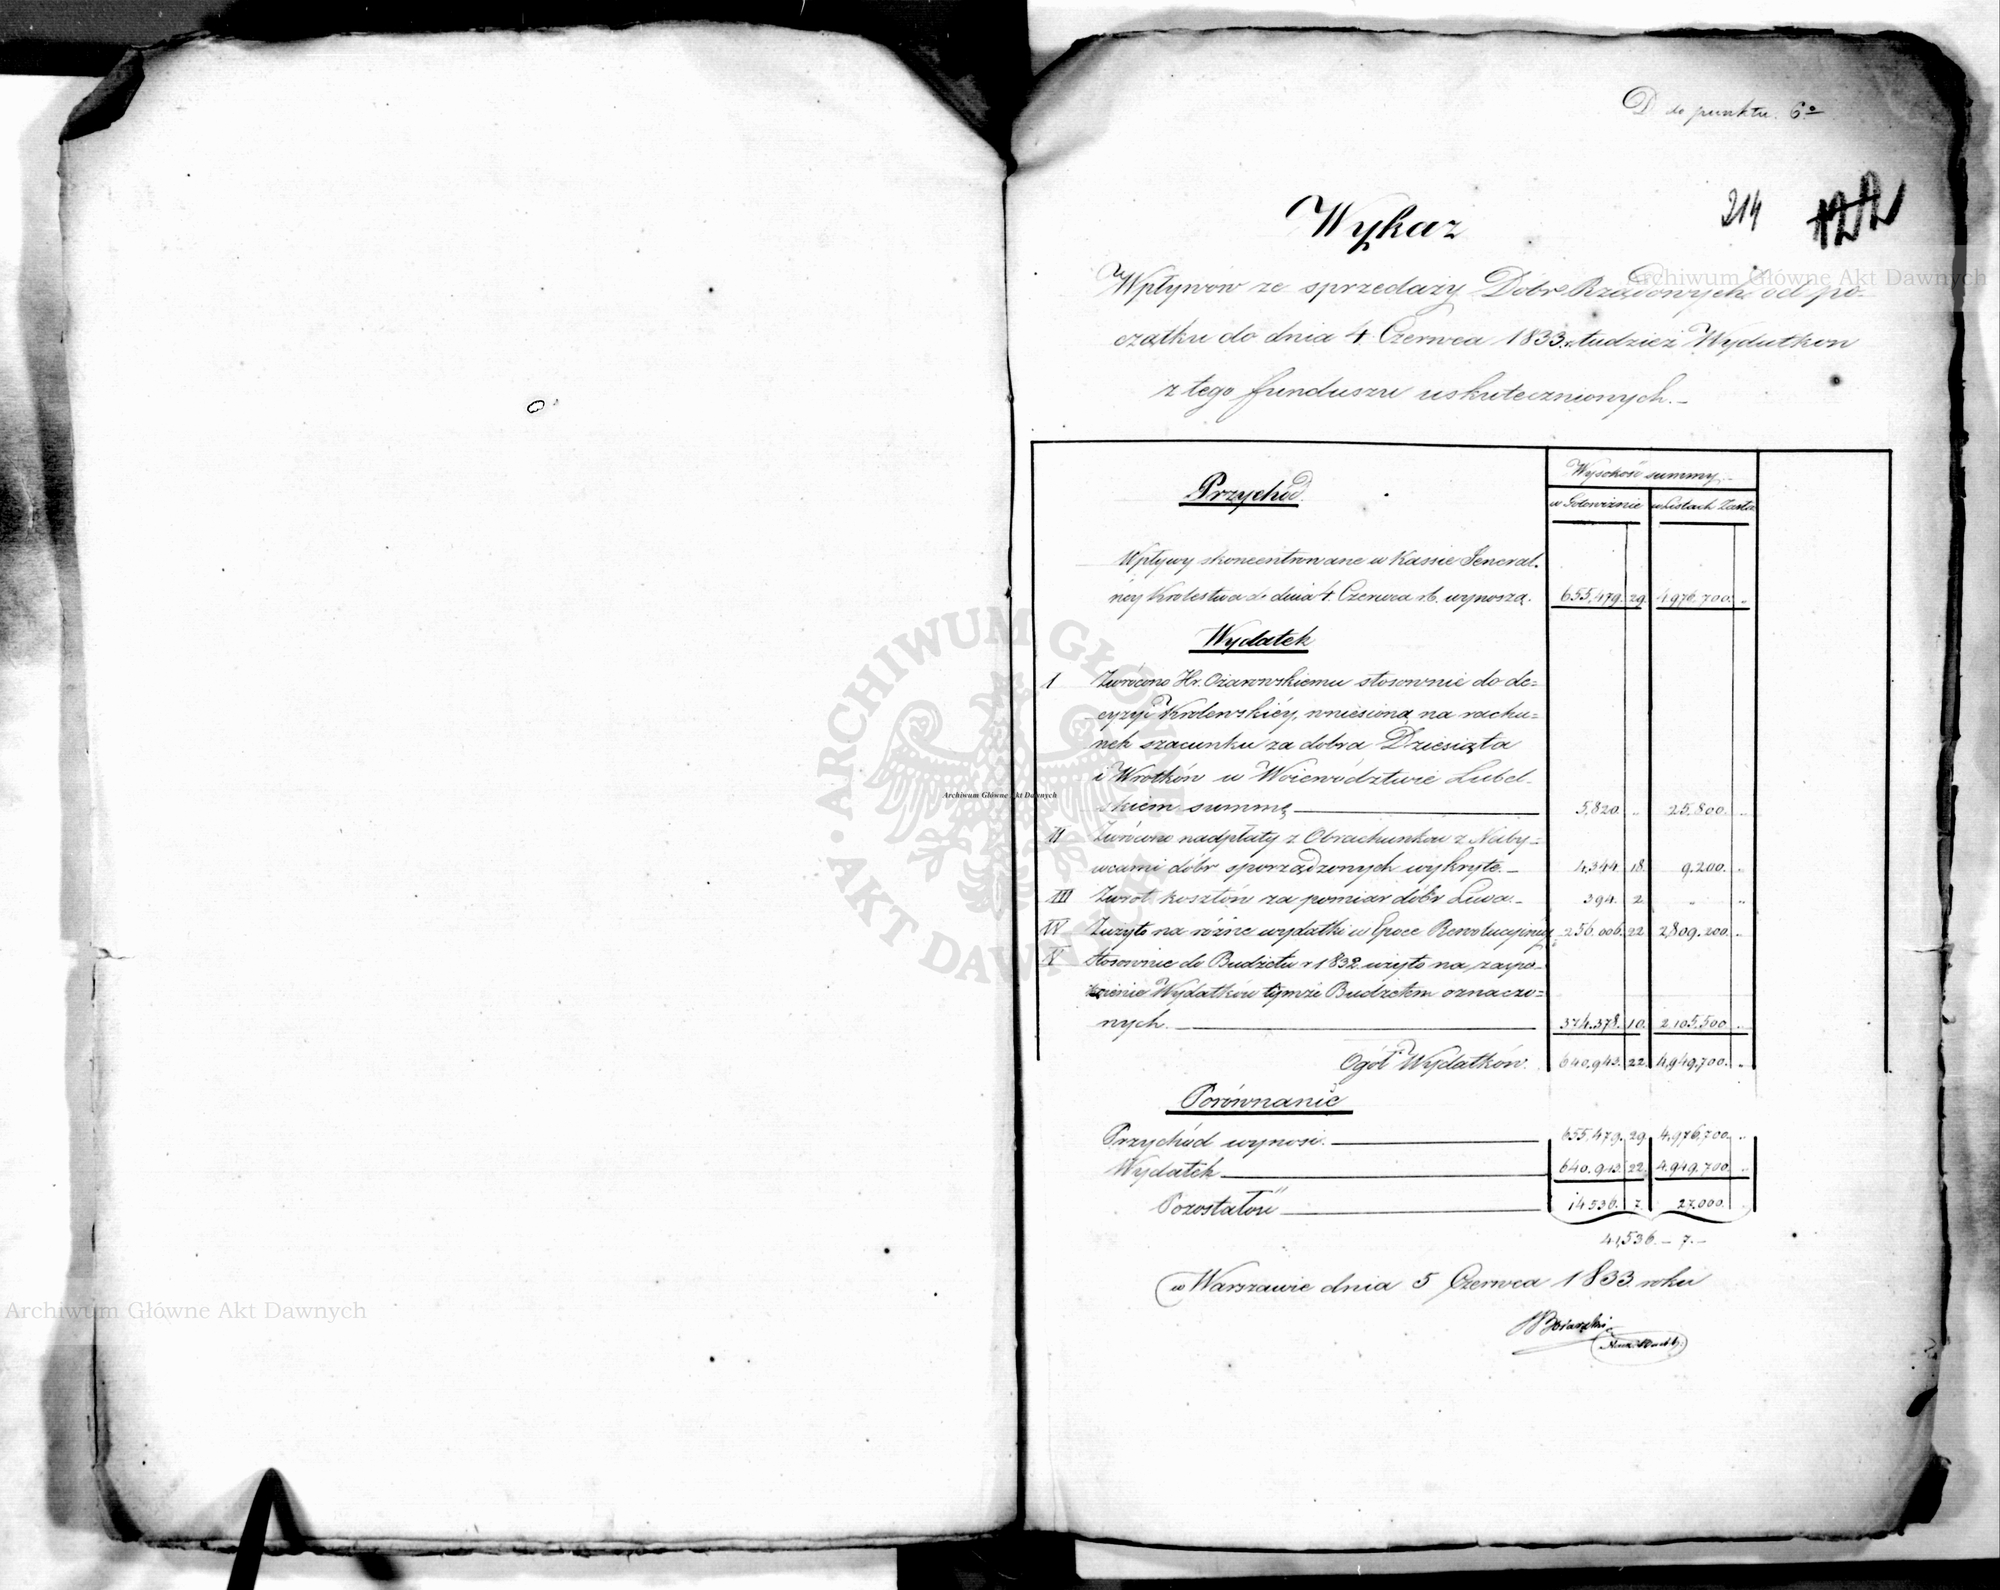 D do punktu. 6º
214
122
Wykaz
Wpływów ze sprzedaży Dóbr Rządowych, od po-
czątku do dnia 4 Czerwca 1833. tudzież Wydatków
z tego funduszu uskutecznionych.-
Przychód.
Wysokość summy.
w Gotowiznie w Listach Zasta:
Wpływy skoncentrowane w Kassie General-
néy Królestwa do dnia 4. Czerwca r.b. wynoszą. 655,479. 29. 4,976,700. "
Wydatek
I Zwrócono Hr. Ożarowskiemu stosownie do de=
cyzyi Królewskiéy, wniesioną na rachu=
nek szacunku za dobra Dziesiąta
i Wrotków w Woiewództwie Lubel-
skiem summę 5,820. " 25,800. "
II Zwrócono nadpłaty z Obrachunków z Naby=
wcami dóbr sporządzonych wykryte.- 4,344. 18. 9,200. "
III Zwrot kosztów za pomiar dóbr Liwa.- 394. 2. " "
IV Zużyto na różne wydatki w Epoce Rewolucyjnéy 256,006. 22 2,809,200. "
V Stosownie do Budżetu r 1832. użyto na zaspo-
kojenie Wydatków tymże Budżetem oznaczo=
nych. 374,378. 10. 2,105,500. "
Ogół Wydatków. 640,943. 22. 4,949,700. "
Porównanie
Przychód wynosi. 655,479. 29 4,976,700. "
Wydatek 640,943. 22. 4,949,700. "
Pozostałość 14,536. 7. 27,000. "
41,536.- 7.-
w Warszawie dnia 5 Czerwca 1833. roku
Archiwum Główne Akt Dawnych
Archiwum Główne Akt Dawnych
Archiwum Główne Akt Dawnych
ARCHIWUM GŁÓWNE AKT DAWNYCH